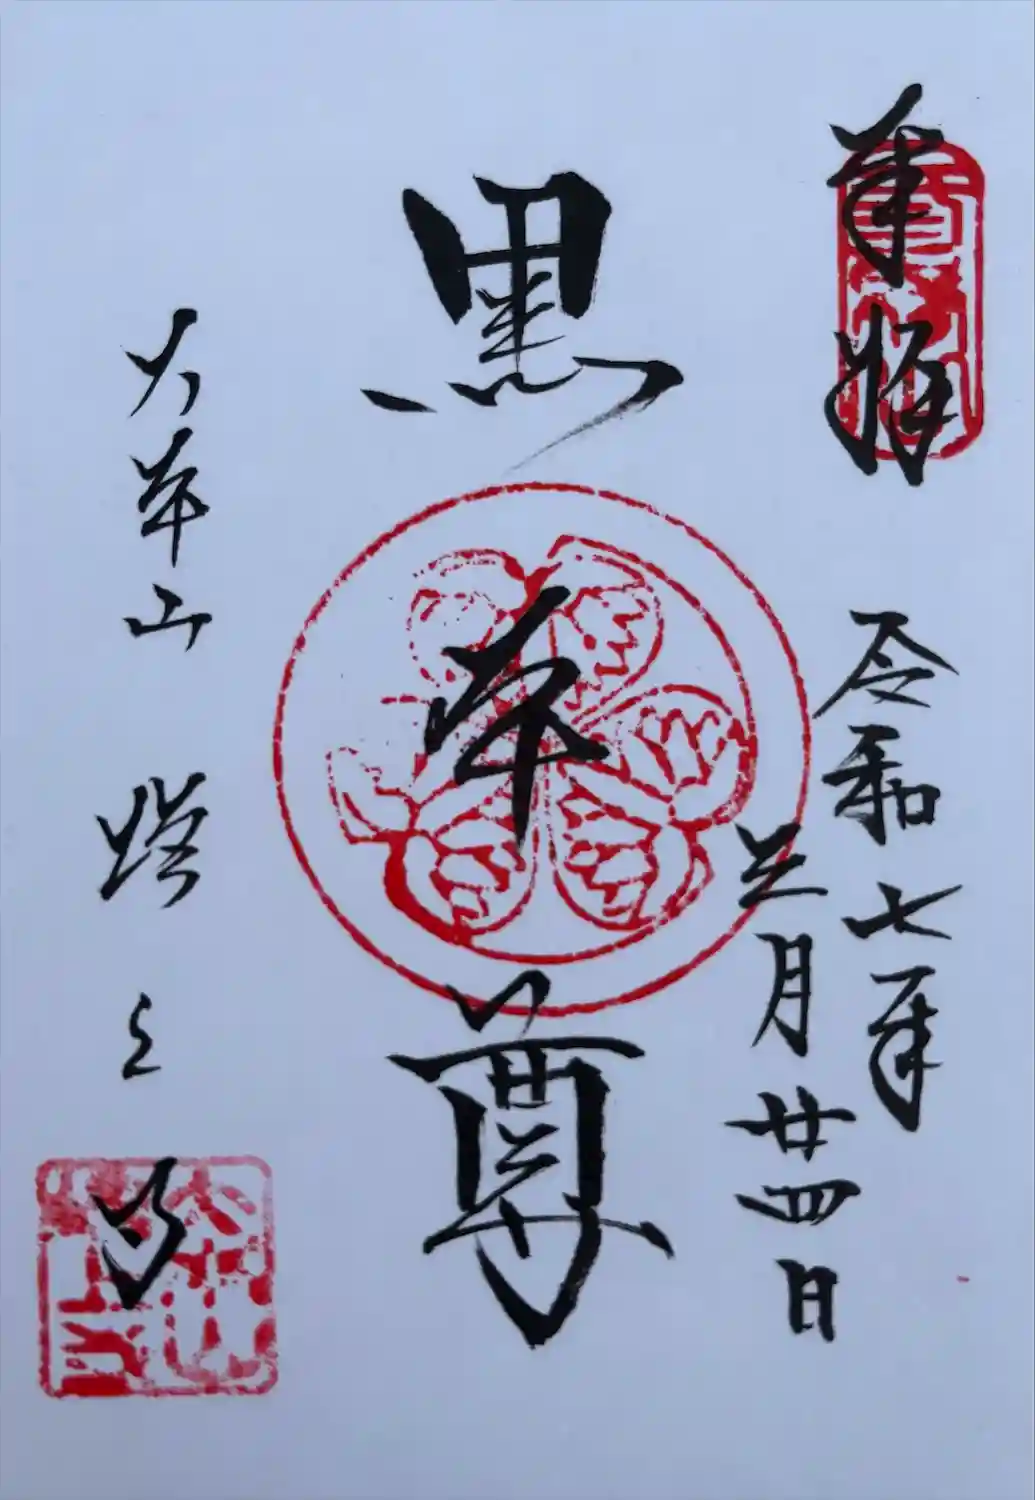 奉拝
令和七年
三月廿四日
黒本尊
大本山
増上寺